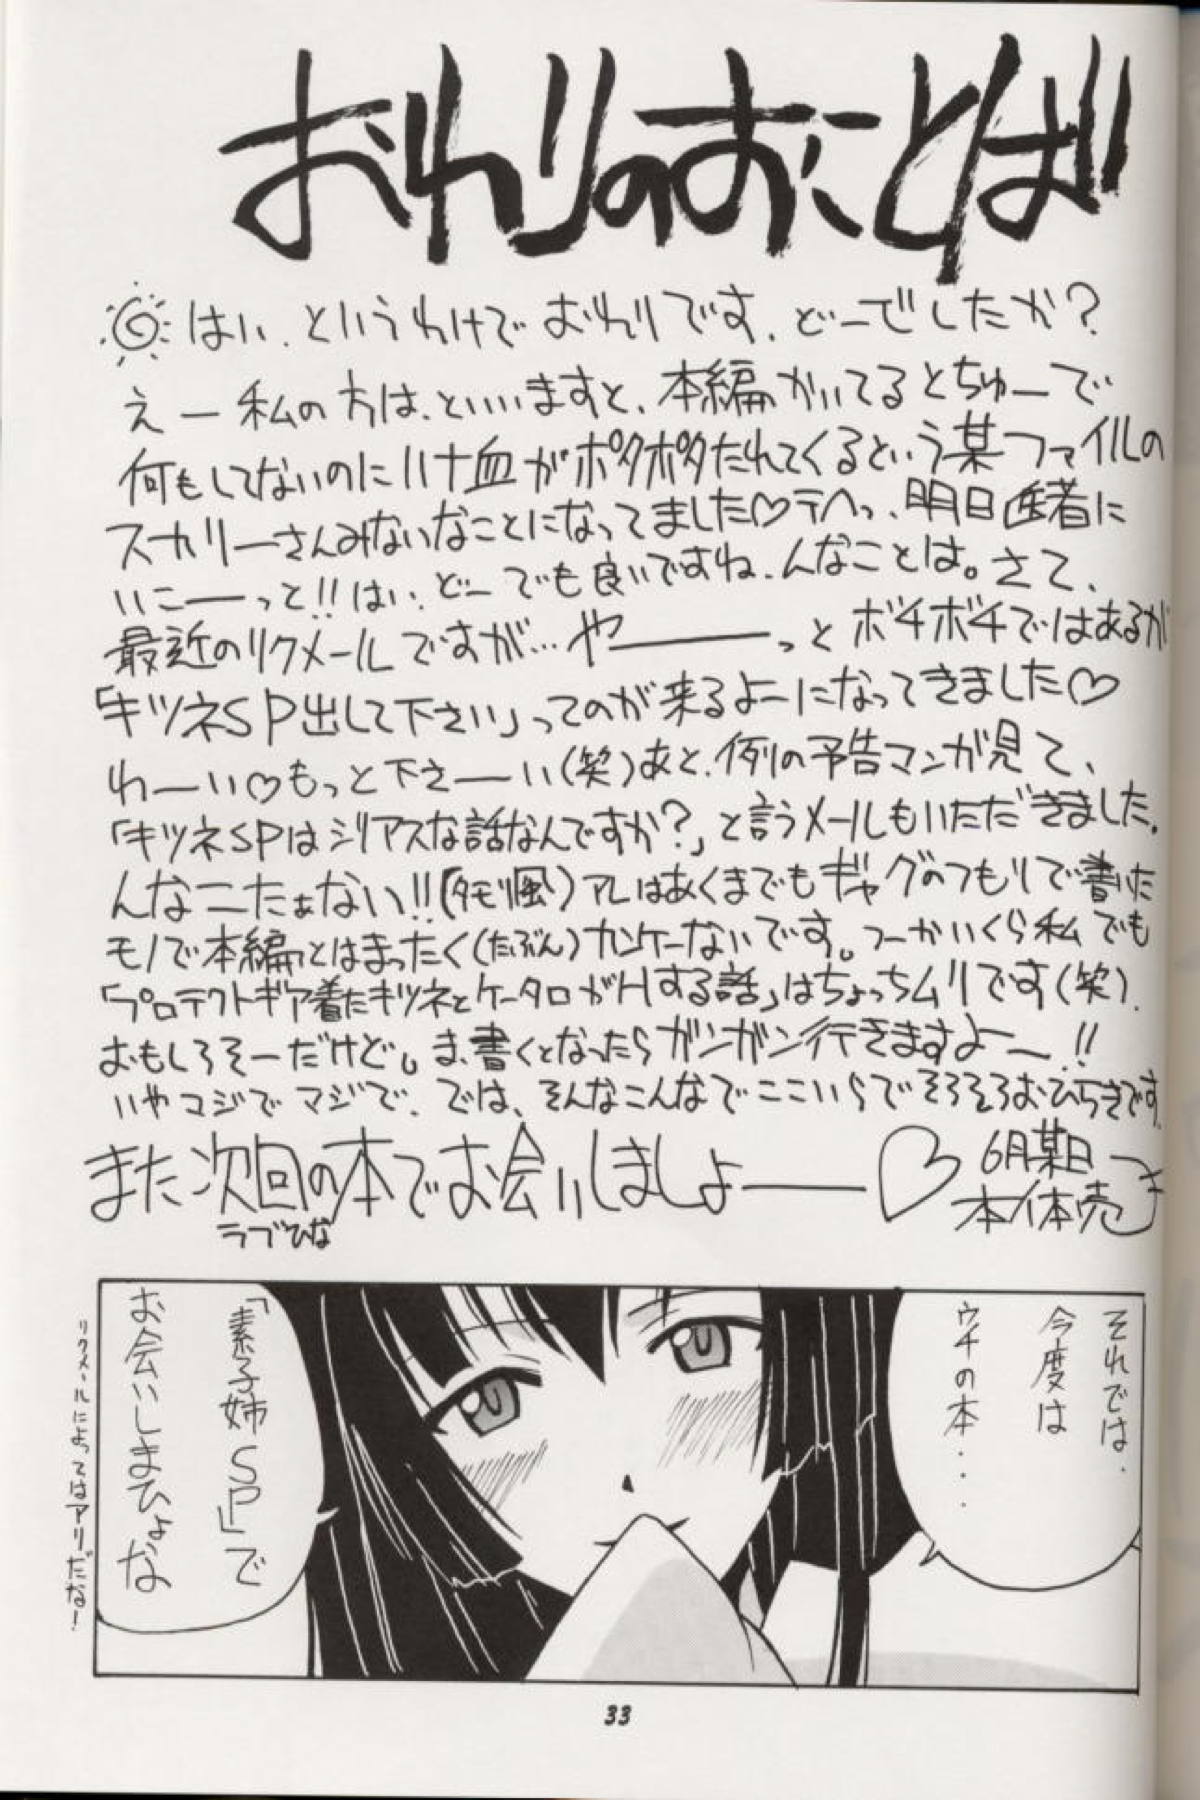 おわりのおことば
はい、というわけでおわりです、どーでしたか？
えー私の方は、といいますと、本編かいてるとちゅーで
何もしてないのにハナ血がポタポタたれてくるという某ファイルの
スカリーさんみないなことになってました♡テヘっ、明日医者に
いこーーっと!!はい、どーでも良いですね、んなことは。さて、
最近のリクメールですが…やーーーっとボチボチではあるが
「キツネSP出して下さい」ってのが来るよーになってきました♡
わーい♡もっと下さーーい(笑)あと、例の予告マンガ見て、
「キツネSPはシリアスな話なんですか?」と言うメールもいただきました。
んなこたぁない!!(タモリ風)アレはあくまでもギャグのつもりで書いた
モノで本編とはまったく(たぶん)カンケーないです。つーかいくら私でも
「プロテクトギア着たキツネとケータロがHする話」はちょっちムリです(笑)。
おもしろそーだけど。ま、書くとなったらガンガン行きますよー!!
いやマジでマジで。では、そんなこんなでここいらでそろそろおひらきです。
また次回の本でお会いしましょーーー♡
ラブひな
6月某日
本体売
それでは、
今度は
ウチの本・・・
「素子姉SP」で
お会いしまひょな
リクメールによってはアリだな！
33